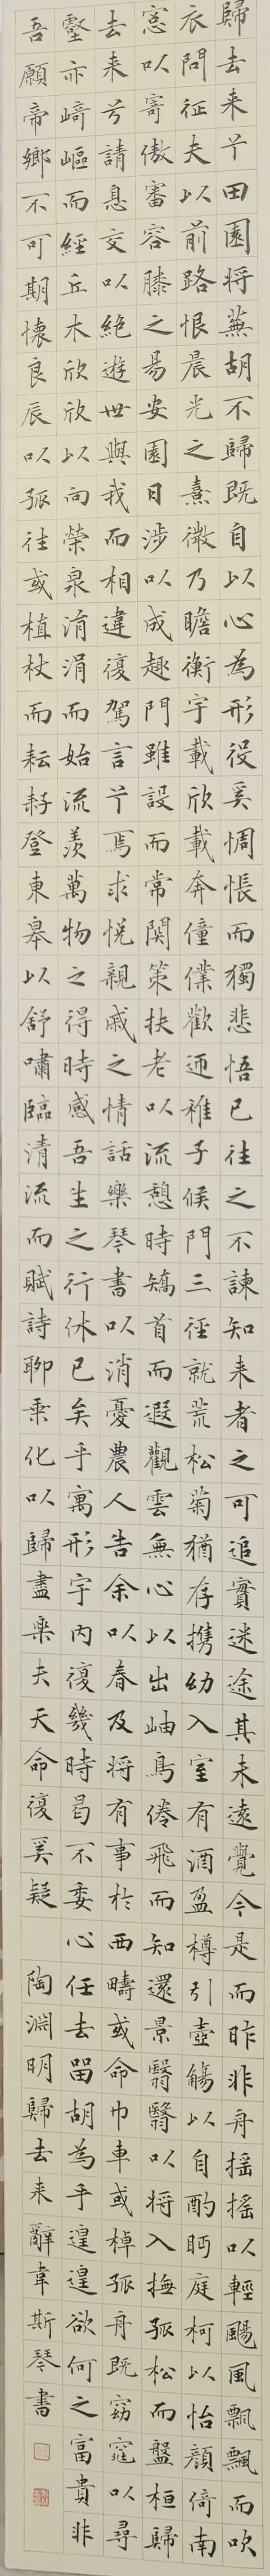 歸去来兮田園将蕪胡不歸既自以心為形役奚惆悵而獨悲悟已往之不諫知来者之可追實迷途其未遠覺今是而昨非舟搖搖以輕颺風飄飄而吹
衣問征夫以前路恨晨光之熹微乃瞻衡宇載欣載奔僮僕歡迎稚子候門三徑就荒松菊猶存携幼入室有酒盈樽引壺觴以自酌眄庭柯以怡顏倚南
窓以寄傲審容膝之易安園日涉以成趣門雖設而常関策扶老以流憩時矯首而遐觀雲無心以出岫鳥倦飛而知還景翳翳以将入撫孤松而盤桓歸
去来兮請息交以絶遊世與我而相違復駕言兮焉求悅親戚之情話樂琴書以消憂農人告余以春及将有事於西疇或命巾車或棹孤舟既窈窕以尋
壑亦崎嶇而經丘木欣欣以向榮泉涓涓而始流羨萬物之得時感吾生之行休已矣乎寓形宇内復幾時曷不委心任去留胡為乎遑遑欲何之富貴非
吾願帝鄉不可期懷良辰以孤往或植杖而耘耔登東皋以舒嘯臨清流而賦詩聊乘化以歸盡樂夫天命復奚疑 陶淵明歸去来辭韋斯琴書